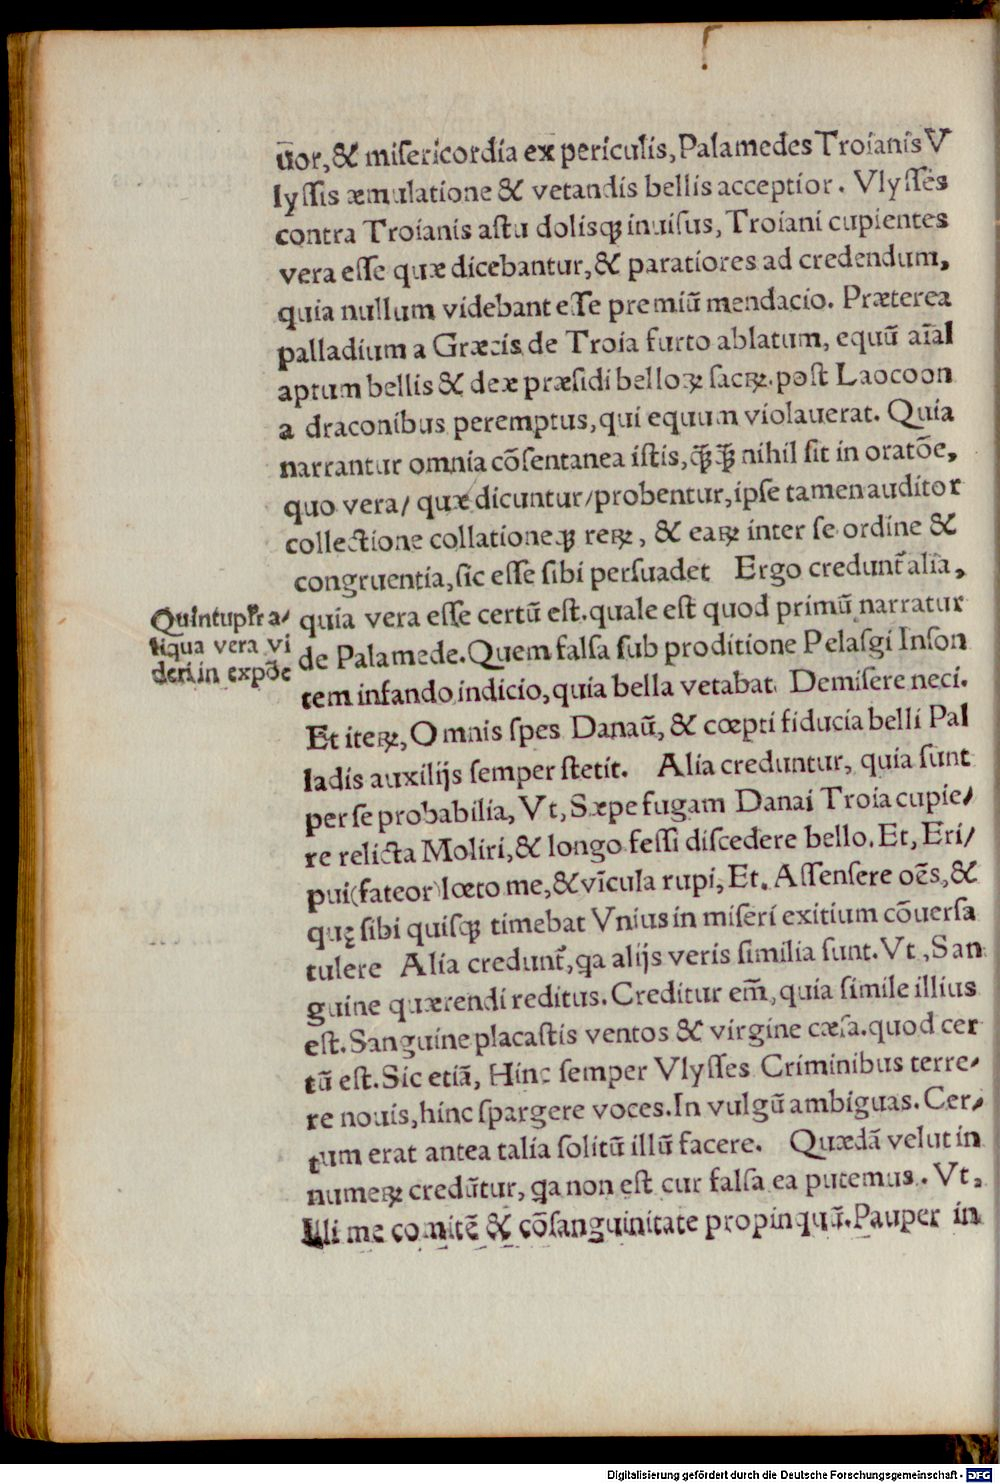 ūor,& misericordia ex periculis,Palamedes Troianis V
lyssis æmulatione & vetandis bellis acceptior. Vlysses
contra Troianis astu dolisqꝫ inuisus, Troiani cupientes
vera esse quæ dicebantur,& paratiores ad credendum,
quia nullum videbant esse premiū mendacio. Præterea
palladium a Græcis de Troia furto ablatum, equū aīal
aptum bellis & deæ præsidi belloꝝ sacꝝ. post Laocoon
a draconibus peremptus,qui equum violauerat. Quia
narrantur omnia cōsentanea istis,qꝫqꝫ nihil sit in oratōe,
quo vera/ quæ dicuntur/probentur,ipse tamen auditor
collectione collationeqꝫ reꝝ, & eaꝝ inter se ordine &
congruentia,sic esse sibi persuadet Ergo credunt̄ alia,
quia vera esse certū est.quale est quod primū narratur
de Palamede.Quem falsa sub proditione Pelasgi Inson
tem infando indicio,quia bella vetabat. Demisere neci.
Et iteꝝ,Omnis spes Danaū, & cœpti fiducia belli Pal
ladis auxilijs semper stetit. Alia creduntur, quia sunt
per se probabilia, Vt,Sæpe fugam Danai Troia cupie/
re relicta Moliri,& longo fessi discedere bello.Et,Eri/
pui(fateor)lœto me,& vīcula rupi,Et. Assensere oēs,&
quę sibi quisqꝫ timebat Vnius in miseri exitium cōuersa
tulere Alia credunt̄,qa alijs veris similia sunt.Vt,San
guine quærendi reditus.Creditur em̄,quia simile illius
est.Sanguine placastis ventos & virgine cæsa.quod cer
tū est.Sic etiā, Hinc semper Vlysses Criminibus terre/
re nouis,hinc spargere voces.In vulgū ambiguas.Cer/
tum erat antea talia solitū illū facere. Quædā velut in
numeꝝ credūtur, qa non est cur falsa ea putemus. Vt,
Illi me comitē & cōsanguinitate propinquū.Pauper in
Quintupłr a/
liqua vera vi
deri in expōe
Digitalisierung gefördert durch die Deutsche Forschungsgemeinschaft - DFG